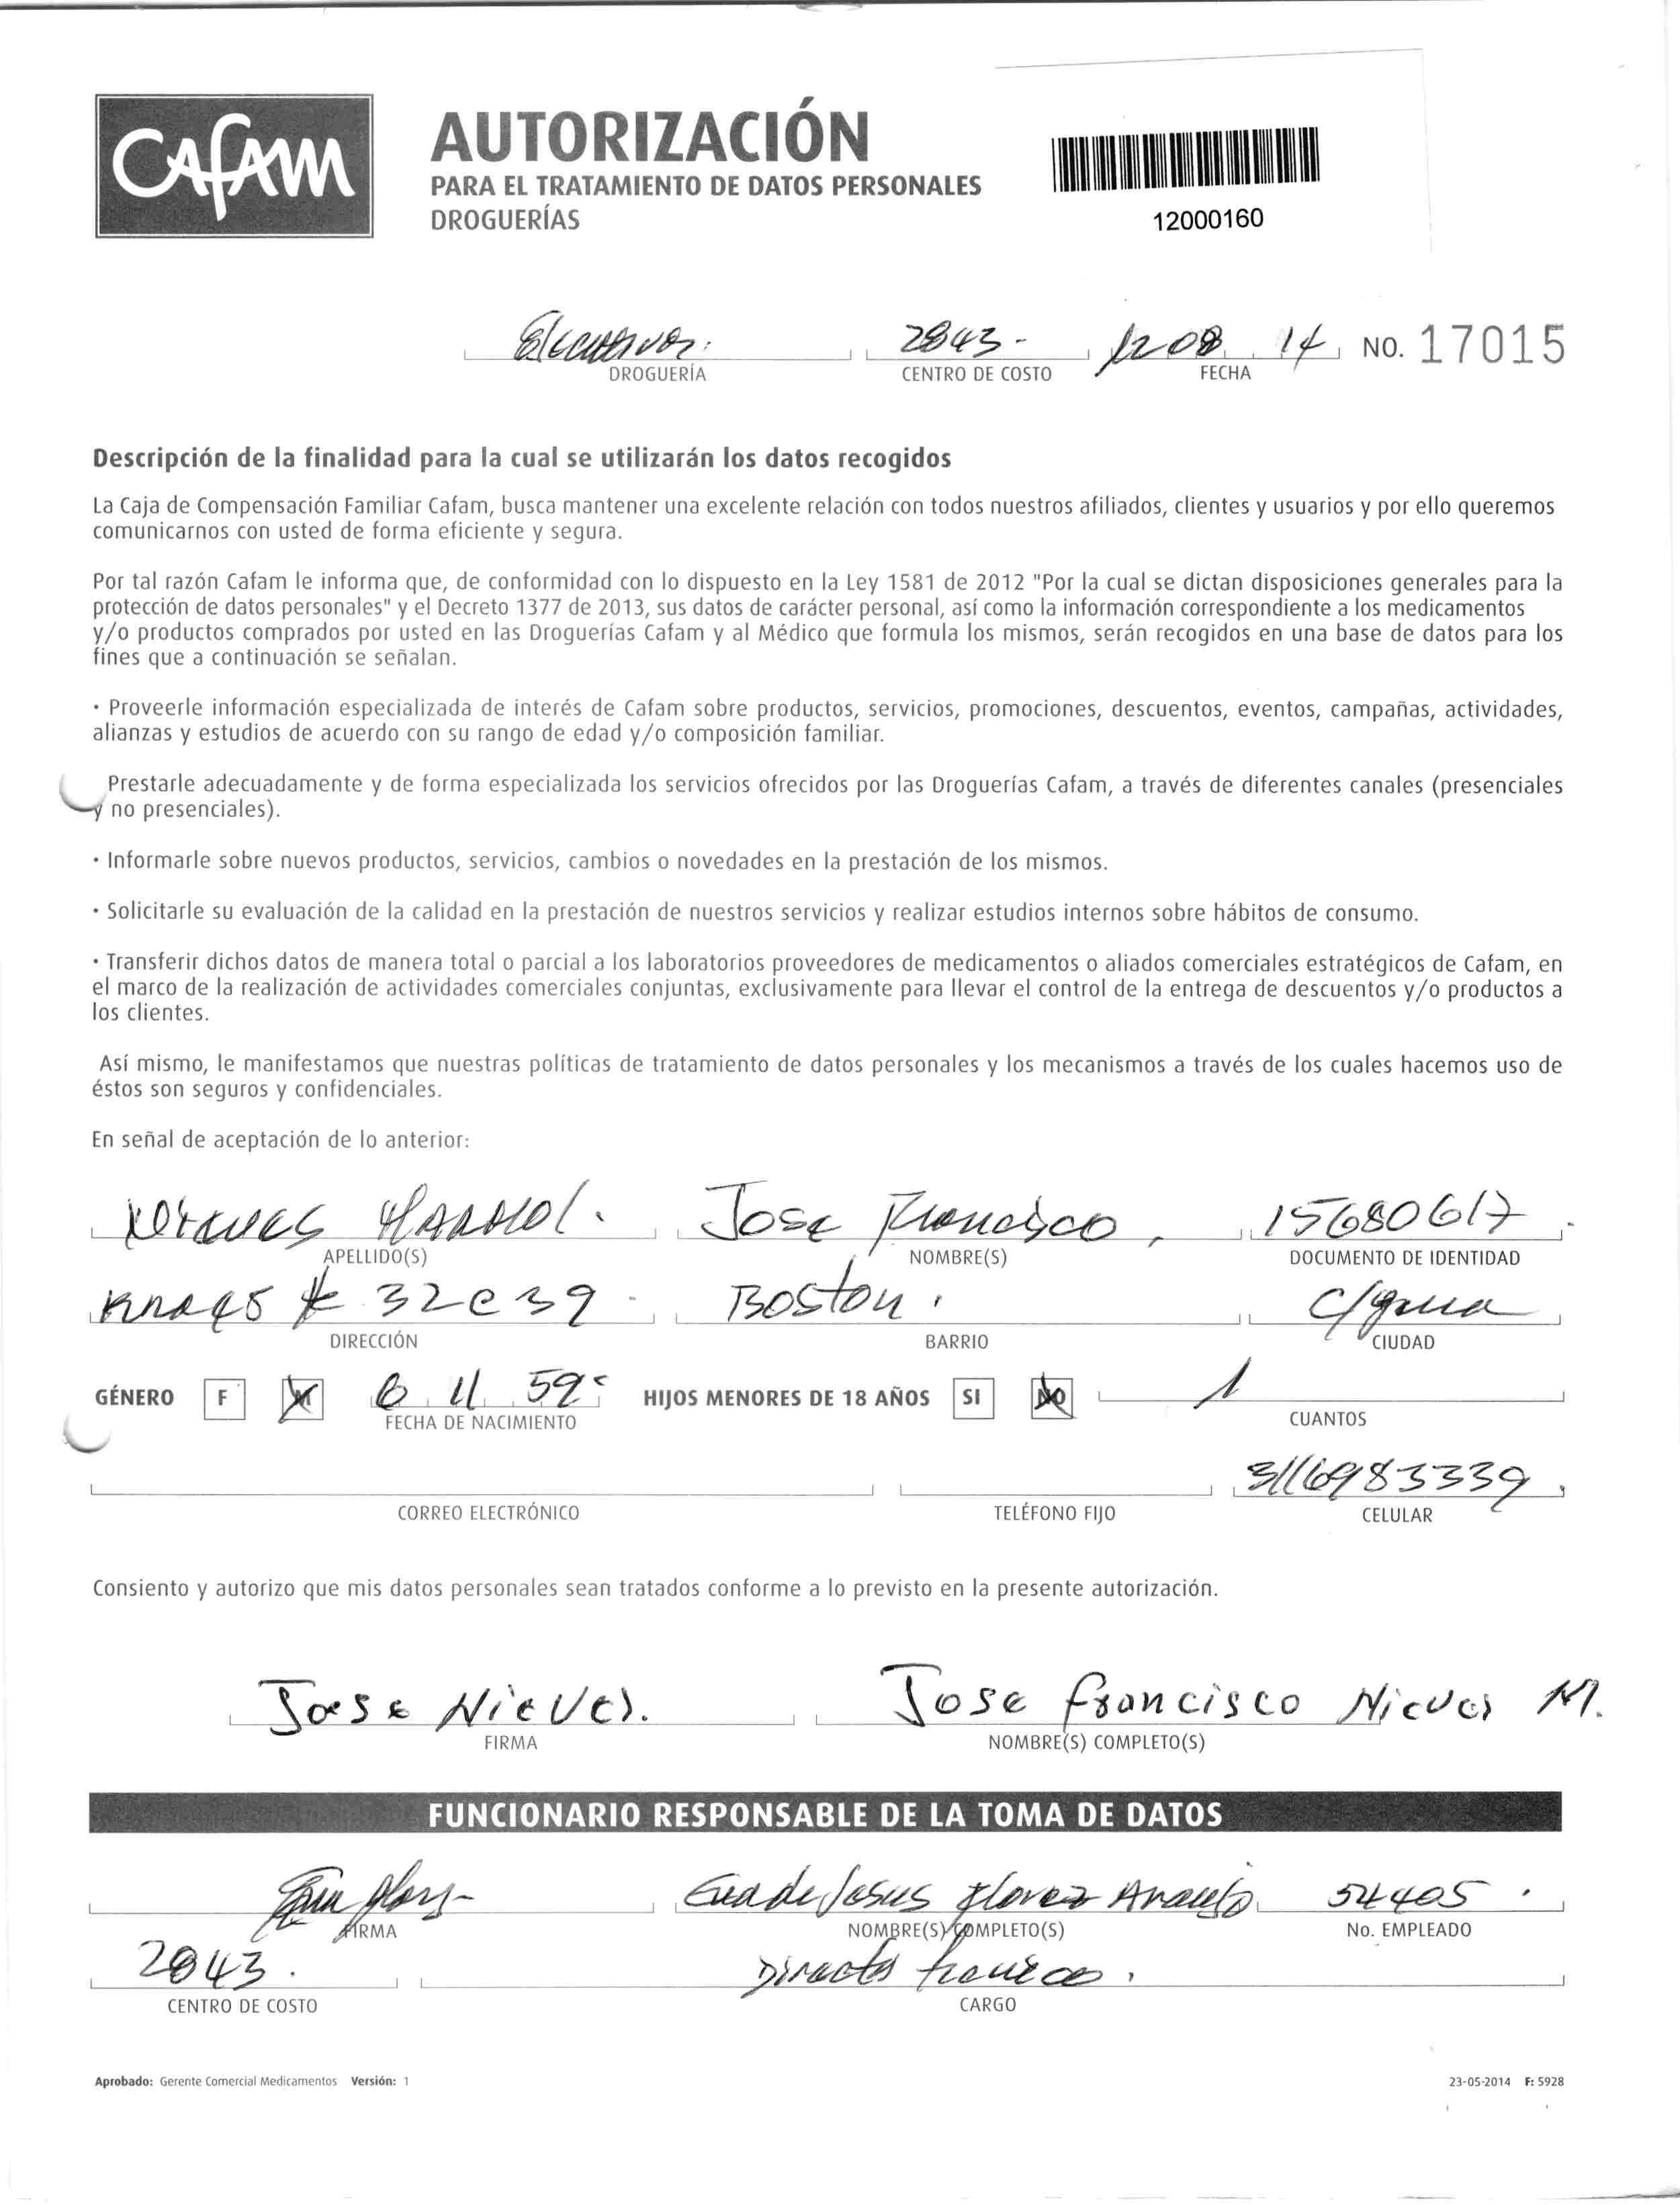 CAFAM
AUTORIZACIÓN
PARA EL TRATAMIENTO DE DATOS PERSONALES
DROGUERÍAS
12000160
2843 - 12 08 14 NO. 17015
DROGUERÍA CENTRO DE COSTO FECHA
Descripción de la finalidad para la cual se utilizarán los datos recogidos
La Caja de Compensación Familiar Cafam, busca mantener una excelente relación con todos nuestros afiliados, clientes y usuarios y por ello queremos
comunicarnos con usted de forma eficiente y segura.
Por tal razón Cafam le informa que, de conformidad con lo dispuesto en la Ley 1581 de 2012 "Por la cual se dictan disposiciones generales para la
protección de datos personales" y el Decreto 1377 de 2013, sus datos de carácter personal, así como la información correspondiente a los medicamentos
y/o productos comprados por usted en las Droguerías Cafam y al Médico que formula los mismos, serán recogidos en una base de datos para los
fines que a continuación se señalan.
· Proveerle información especializada de interés de Cafam sobre productos, servicios, promociones, descuentos, eventos, campañas, actividades,
alianzas y estudios de acuerdo con su rango de edad y/o composición familiar.
Prestarle adecuadamente y de forma especializada los servicios ofrecidos por las Droguerías Cafam, a través de diferentes canales (presenciales
y no presenciales).
· Informarle sobre nuevos productos, servicios, cambios o novedades en la prestación de los mismos.
· Solicitarle su evaluación de la calidad en la prestación de nuestros servicios y realizar estudios internos sobre hábitos de consumo.
· Transferir dichos datos de manera total o parcial a los laboratorios proveedores de medicamentos o aliados comerciales estratégicos de Cafam, en
el marco de la realización de actividades comerciales conjuntas, exclusivamente para llevar el control de la entrega de descuentos y/o productos a
los clientes.
Así mismo, le manifestamos que nuestras políticas de tratamiento de datos personales y los mecanismos a través de los cuales hacemos uso de
éstos son seguros y confidenciales.
En señal de aceptación de lo anterior:
Jose Francisco 15680617
APELLIDO(S) NOMBRE(S) DOCUMENTO DE IDENTIDAD
32 C 39 Boston. C/gena
DIRECCIÓN BARRIO CIUDAD
GÉNERO F M 6 11 59 HIJOS MENORES DE 18 AÑOS SI NO 1
FECHA DE NACIMIENTO CUANTOS
3116983339
CORREO ELECTRÓNICO TELÉFONO FIJO CELULAR
Consiento y autorizo que mis datos personales sean tratados conforme a lo previsto en la presente autorización.
Jose Nieves. Jose francisco Nieves M.
FIRMA NOMBRE(S) COMPLETO(S)
FUNCIONARIO RESPONSABLE DE LA TOMA DE DATOS
de Jesus Florez Araujo 54405
FIRMA NOMBRE(S) COMPLETO(S) No. EMPLEADO
2843. Director
CENTRO DE COSTO CARGO
Aprobado: Gerente Comercial Medicamentos Versión: 1 23-05-2014 F: 5928